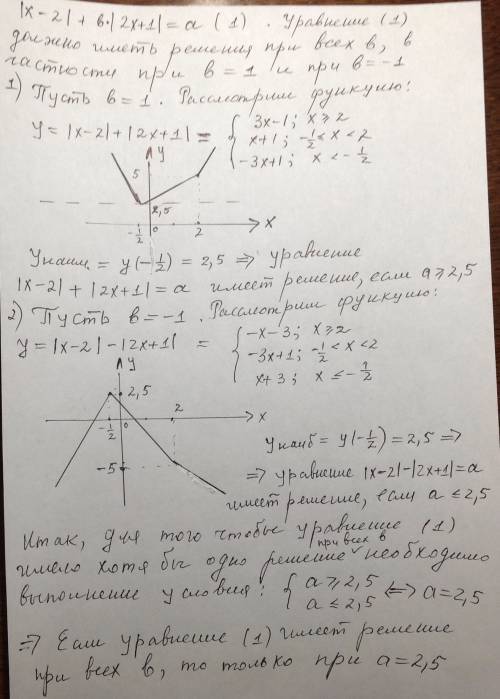 |x-2| + в·|2x+1| = a (1). Уравнение (1)
должно иметь решения при всех в, в
частности при в = 1 и при в = -1
1) Пусть в = 1. Рассмотрим функцию:
y = |x-2| + |2x+1| = { 3x-1; x ≥ 2
x+1; -1/2 < x < 2
-3x+1; x < -1/2
y
5
2,5
-1/2 0 2 x
Yнаим. = y(-1/2) = 2,5 => уравнение
|x-2| + |2x+1| = a имеет решение, если a ≥ 2,5
2) Пусть в = -1. Рассмотрим функцию:
y = |x-2| - |2x+1| = { -x-3; x ≥ 2
-3x+1; -1/2 < x < 2
x+3; x ≤ -1/2
y
2,5
-1/2 0 2 x
-5
Yнаиб = y(-1/2) = 2,5 =>
=> уравнение |x-2| - |2x+1| = a
имеет решение, если a ≤ 2,5
Итак, для того чтобы уравнение (1)
имело хотя бы одно решение при всех в необходимо
выполнение условия: { a ≥ 2,5
a ≤ 2,5 <=> a = 2,5
=> Если уравнение (1) имеет решение
при всех в, то только при a = 2,5